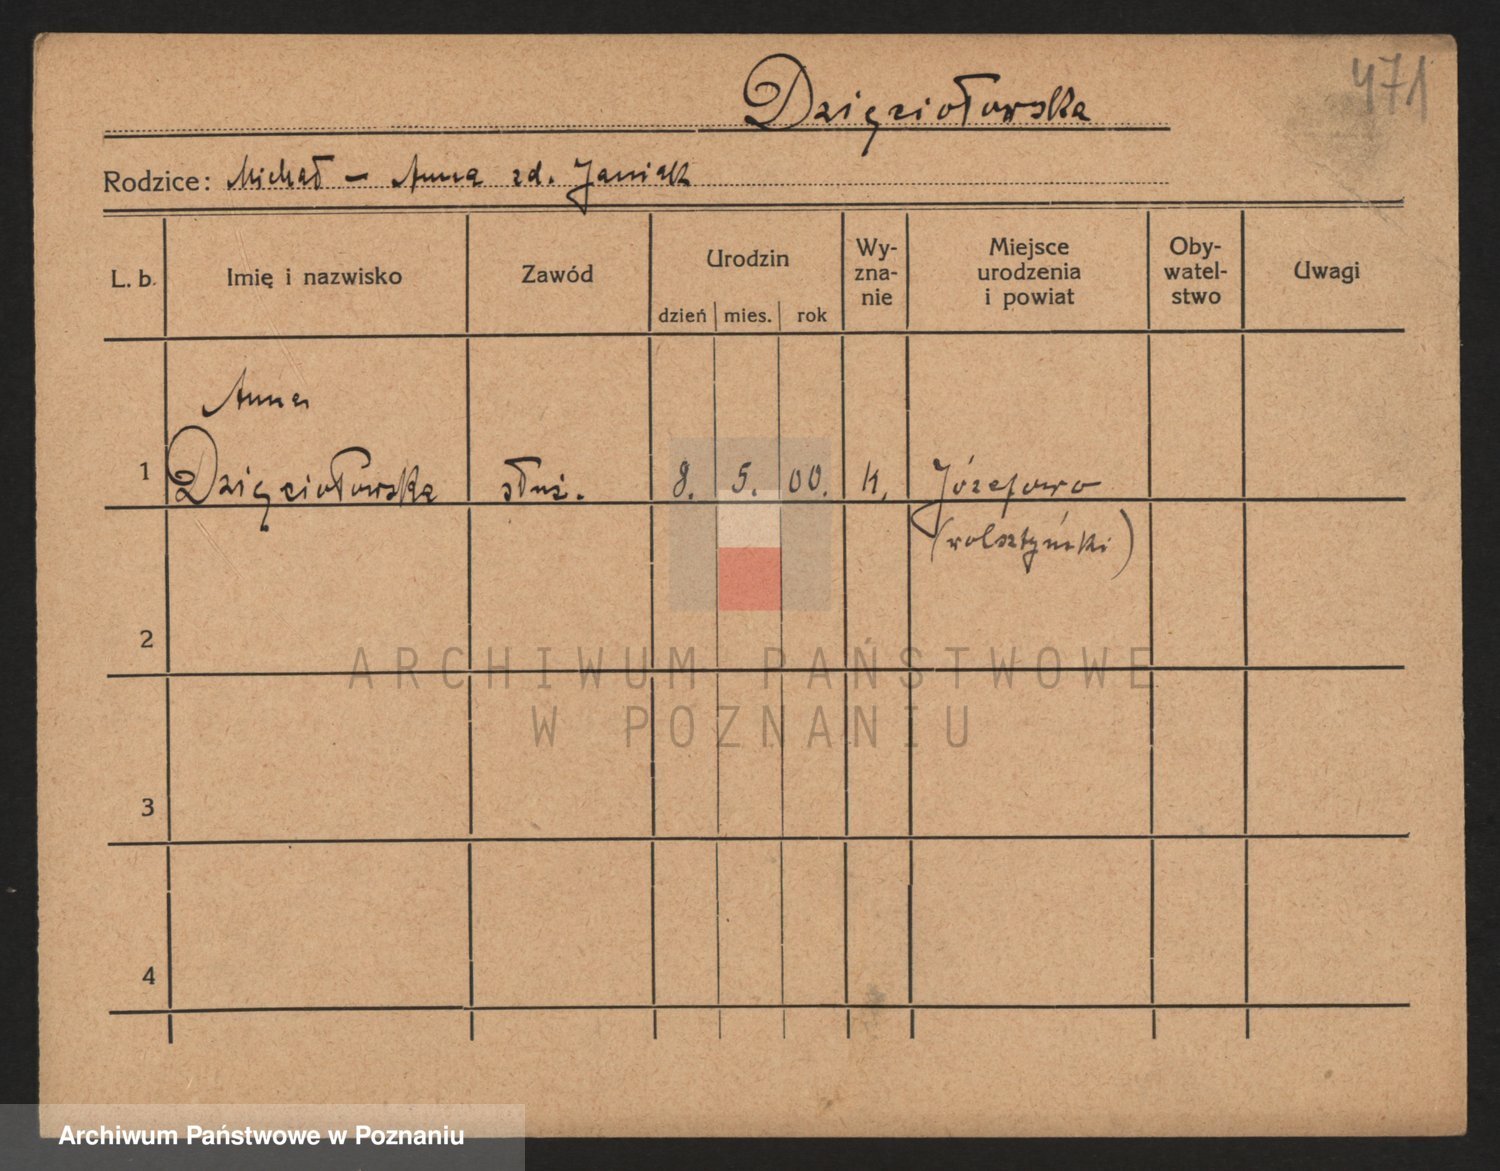 471
Dzięciołowska
Rodzice: Michał – Anna zd. Janiak
L. b. Imię i nazwisko Zawód Urodzin Wy-zna-nie Miejsce urodzenia i powiat Oby-watel-stwo Uwagi
dzień mies. rok
Anna
1 Dzięciołowska służ. 8. 5. 00. k. Józefowo
(wolsztyński)
2
ARCHIWUM PAŃSTWOWE
W POZNANIU
3
4
Archiwum Państwowe w Poznaniu